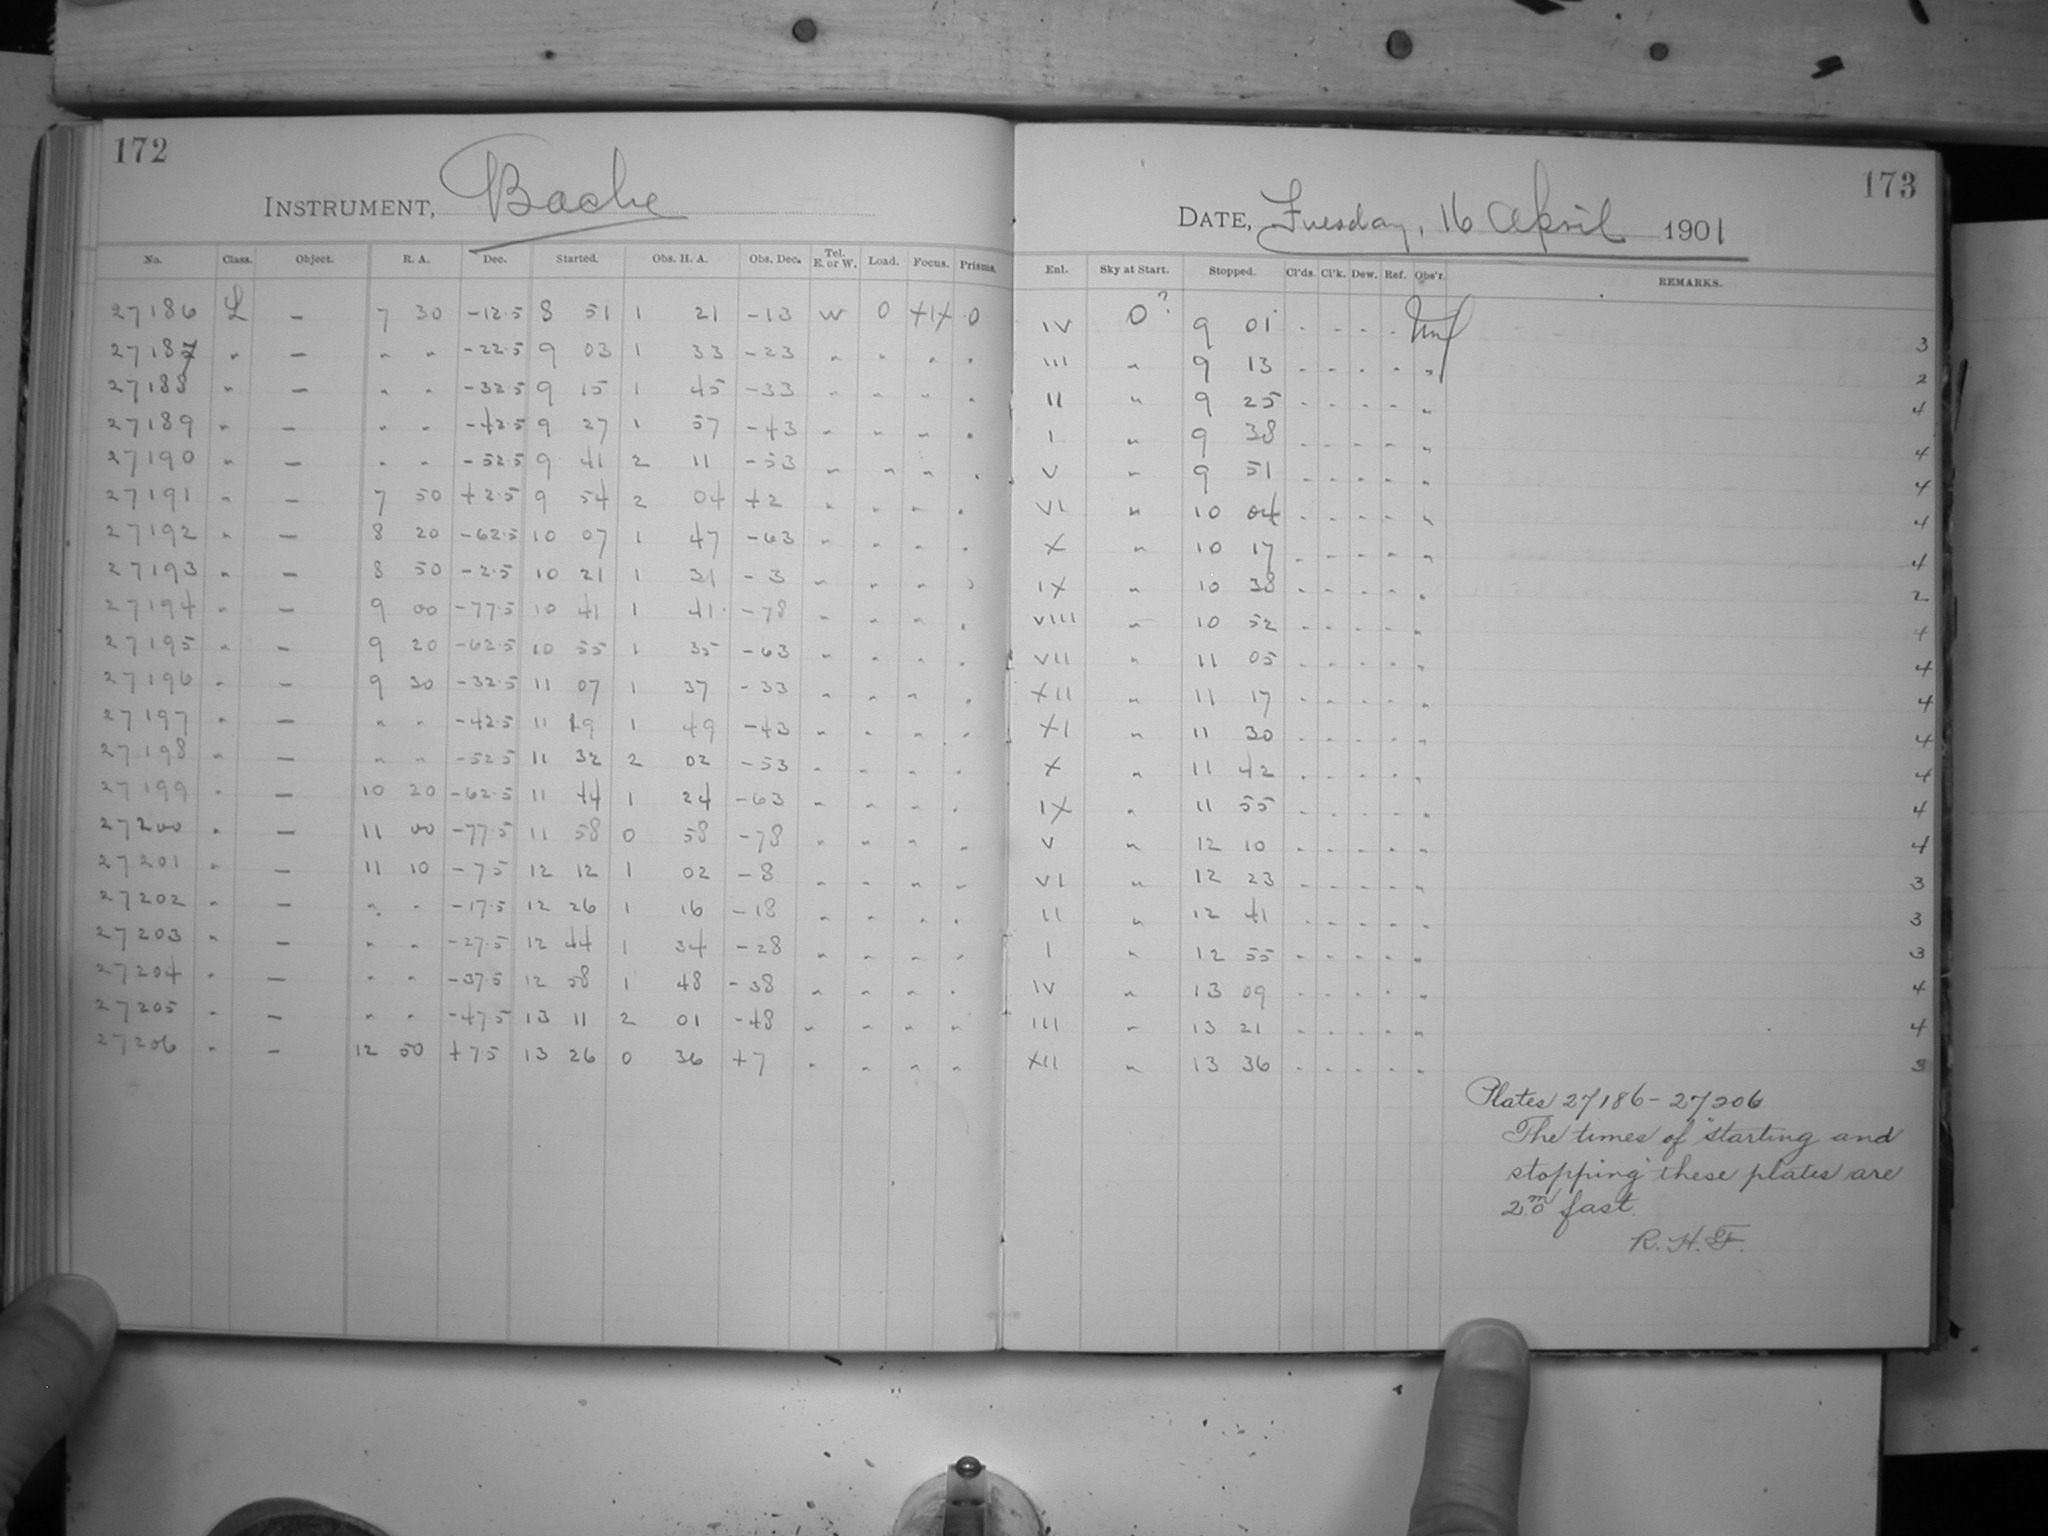 172
INSTRUMENT, Bache
No. Class. Object. R. A. Dec. Started. Obs. H. A. Obs. Dec. Tel. E. or W. Load. Focus. Prisms.
27186 L – 7 30 -12.5 8 51 1 21 -13 W 0 +1+ 0
27187 " – " " -22.5 9 03 1 33 -23 " " " "
27188 " – " " -32.5 9 15 1 45 -33 " " " "
27189 " – " " -42.5 9 27 1 57 -43 " " " "
27190 " – " " -52.5 9 41 2 11 -53 " " " "
27191 " – 7 50 +2.5 9 54 2 04 +2 " " " "
27192 " – 8 20 -62.5 10 07 1 47 -63 " " " "
27193 " – 8 50 -2.5 10 21 1 31 -3 " " " "
27194 " – 9 00 -77.5 10 41 1 41 -78 " " " "
27195 " – 9 20 -62.5 10 55 1 35 -63 " " " "
27196 " – 9 30 -32.5 11 07 1 37 -33 " " " "
27197 " – " " -42.5 11 19 1 49 -43 " " " "
27198 " – " " -52.5 11 32 2 02 -53 " " " "
27199 " – 10 20 -62.5 11 44 1 24 -63 " " " "
27200 " – 11 00 -77.5 11 58 0 58 -78 " " " "
27201 " – 11 10 -7.5 12 12 1 02 -8 " " " "
27202 " – " " -17.5 12 26 1 16 -18 " " " "
27203 " – " " -27.5 12 44 1 34 -28 " " " "
27204 " – " " -37.5 12 58 1 48 -38 " " " "
27205 " – " " -47.5 13 11 2 01 -48 " " " "
27206 " – 12 50 +7.5 13 26 0 36 +7 " " " "
173
DATE, Tuesday, 16 April 1901
Enl. Sky at Start. Stopped. Cl'ds. Cl'k. Dew. Ref. Obs'r. REMARKS.
IV 0? 9 01 - - - - 3
III " 9 13 - - - - " 2
II " 9 25 - - - - " 4
I " 9 38 - - - - " 4
V " 9 51 - - - - " 4
VI " 10 04 - - - - " 4
X " 10 17 - - - - " 4
IX " 10 38 - - - - " 2
VIII " 10 52 - - - - " 4
VII " 11 05 - - - - " 4
XII " 11 17 - - - - " 4
XI " 11 30 - - - - " 4
X " 11 42 - - - - " 4
IX " 11 55 - - - - " 4
V " 12 10 - - - - " 4
VI " 12 23 - - - - " 3
II " 12 41 - - - - " 3
I " 12 55 - - - - " 3
IV " 13 09 - - - - " 4
III " 13 21 - - - - " 4
XII " 13 36 - - - - " 3
Plates 27186 - 27206
The times of "starting and
stopping" these plates are
2.0m fast.
R. H. F.